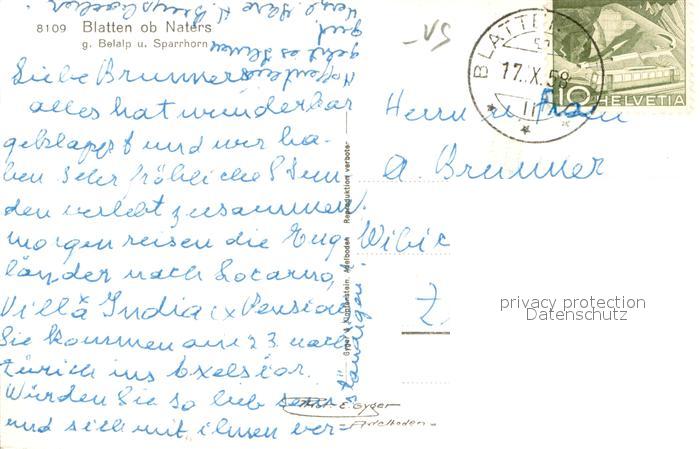 8109 Blatten ob Naters
g. Belalp u. Sparrhorn
Hoffentlich
geht es Ihnen
gut.
Liebe Brunners
alles hat wunderbar
geklappt und wir ha-
ben sehr fröhliche Stun
den verlebt zusammen.
morgen reisen die Eng
länder nach Locarno,
Villa India (x Pension
Sie kommen am 23. nach
Zürich ins Exelsior.
Würden Sie so lieb sein
und sich mit ihnen ver=
ständigen!
Gyger & Klopfenstein, Adelboden Reproduktion verboten
Phot. E. Gyger
Adelboden
-VS
BLATTEN
17.X.58
10 HELVETIA
Herrn u Frau
A. Brunner
Wibic
Z
privacy protection
Datenschutz